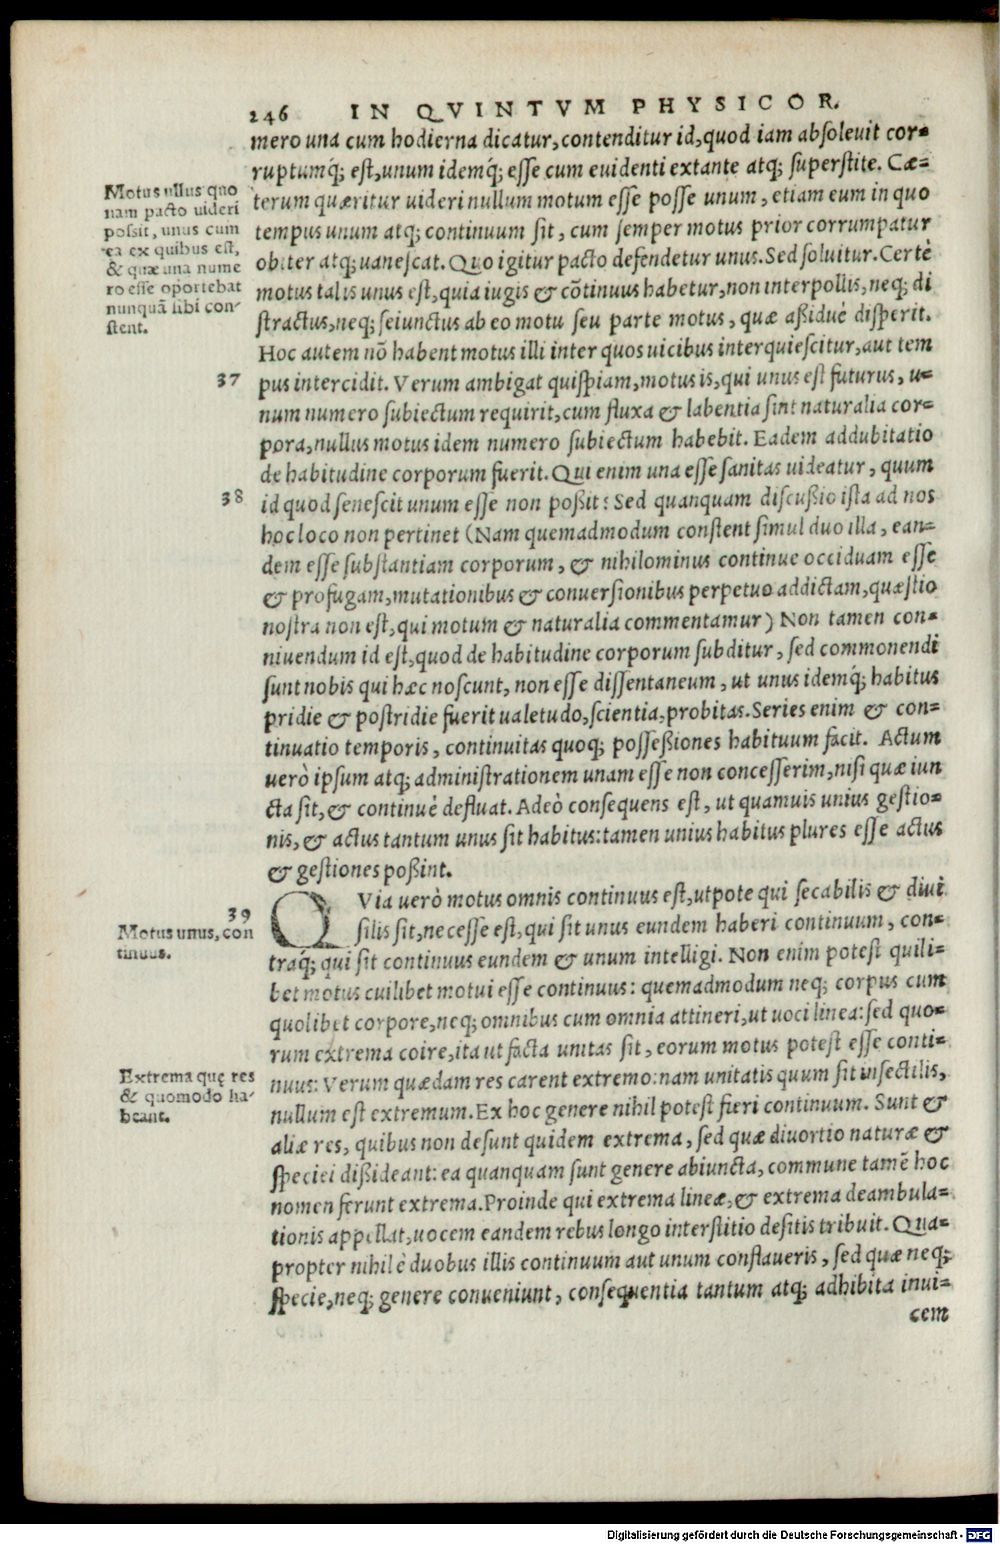 246 IN QVINTVM PHYSICOR.
mero una cum hodierna dicatur, contenditur id, quod iam absoleuit cor=
ruptumq́; est, unum idemq́; esse cum euidenti extante atq; superstite. Cæ=
terum quæritur uideri nullum motum esse posse unum, etiam eum in quo
tempus unum atq; continuum sit, cum semper motus prior corrumpatur
obiter atq; uanescat. Quo igitur pacto defendetur unus. Sed soluitur. Certè
motus talis unus est, quia iugis & cõtinuus habetur, non interpollis, neq; di
stractus, neq; seiunctus ab eo motu seu parte motus, quæ aßiduè disperit.
Hoc autem nõ habent motus illi inter quos uicibus interquiescitur, aut tem
pus intercidit. Verum ambigat quispiam, motus is, qui unus est futurus, u=
num numero subiectum requirit, cum fluxa & labentia sint naturalia cor=
pora, nullus motus idem numero subiectum habebit. Eadem addubitatio
de habitudine corporum fuerit. Qui enim una esse sanitas uideatur, quum
id quod senescit unum esse non poßit? Sed quanquam discußio ista ad nos
hoc loco non pertinet (Nam quemadmodum constent simul duo illa, ean=
dem esse substantiam corporum, & nihilominus continue occiduam esse
& profugam, mutationibus & conuersionibus perpetuo addictam, quæstio
nostra non est, qui motum & naturalia commentamur) Non tamen con=
niuendum id est, quod de habitudine corporum subditur, sed commonendi
sunt nobis qui hæc noscunt, non esse dissentaneum, ut unus idemq́; habitus
pridie & postridie fuerit ualetudo, scientia, probitas. Series enim & con=
tinuatio temporis, continuitas quoq; posseßiones habituum facit. Actum
uerò ipsum atq; administrationem unam esse non concesserim, nisi quæ iun
cta sit, & continuè defluat. Adeò consequens est, ut quamuis unius gestio=
nis, & actus tantum unus sit habitus: tamen unius habitus plures esse actus
& gestiones poßint.
QVia uerò motus omnis continuus est, utpote qui secabilis & diui
silis sit, necesse est, qui sit unus eundem haberi continuum, con=
traq́; qui sit continuus eundem & unum intelligi. Non enim potest quili=
bet motus cuilibet motui esse continuus: quemadmodum neq; corpus cum
quolibet corpore, neq; omnibus cum omnia attineri, ut uoci linea: sed quo=
rum extrema coire, ita ut facta unitas sit, eorum motus potest esse conti=
nuus: Verum quædam res carent extremo: nam unitatis quum sit insectilis,
nullum est extremum. Ex hoc genere nihil potest fieri continuum. Sunt &
aliæ res, quibus non desunt quidem extrema, sed quæ diuortio naturæ &
speciei dißideant: ea quanquam sunt genere abiuncta, commune tamẽ hoc
nomen ferunt extrema. Proinde qui extrema lineæ, & extrema deambula=
tionis appellat, uocem eandem rebus longo interstitio desitis tribuit. Qua=
propter nihil è duobus illis continuum aut unum constaueris, sed quæ neq;
specie, neq; genere conueniunt, consequentia tantum atq; adhibita inui=
cem
Motus ullus quo
nam pacto uideri
possit, unus cum
ea ex quibus est,
& quæ una nume
ro esse oportebat
nunquã sibi con-
stent.
37
38
39
Motus unus, con
tinuus.
Extrema quę res
& quomodo ha-
beant.
Digitalisierung gefördert durch die Deutsche Forschungsgemeinschaft - DFG